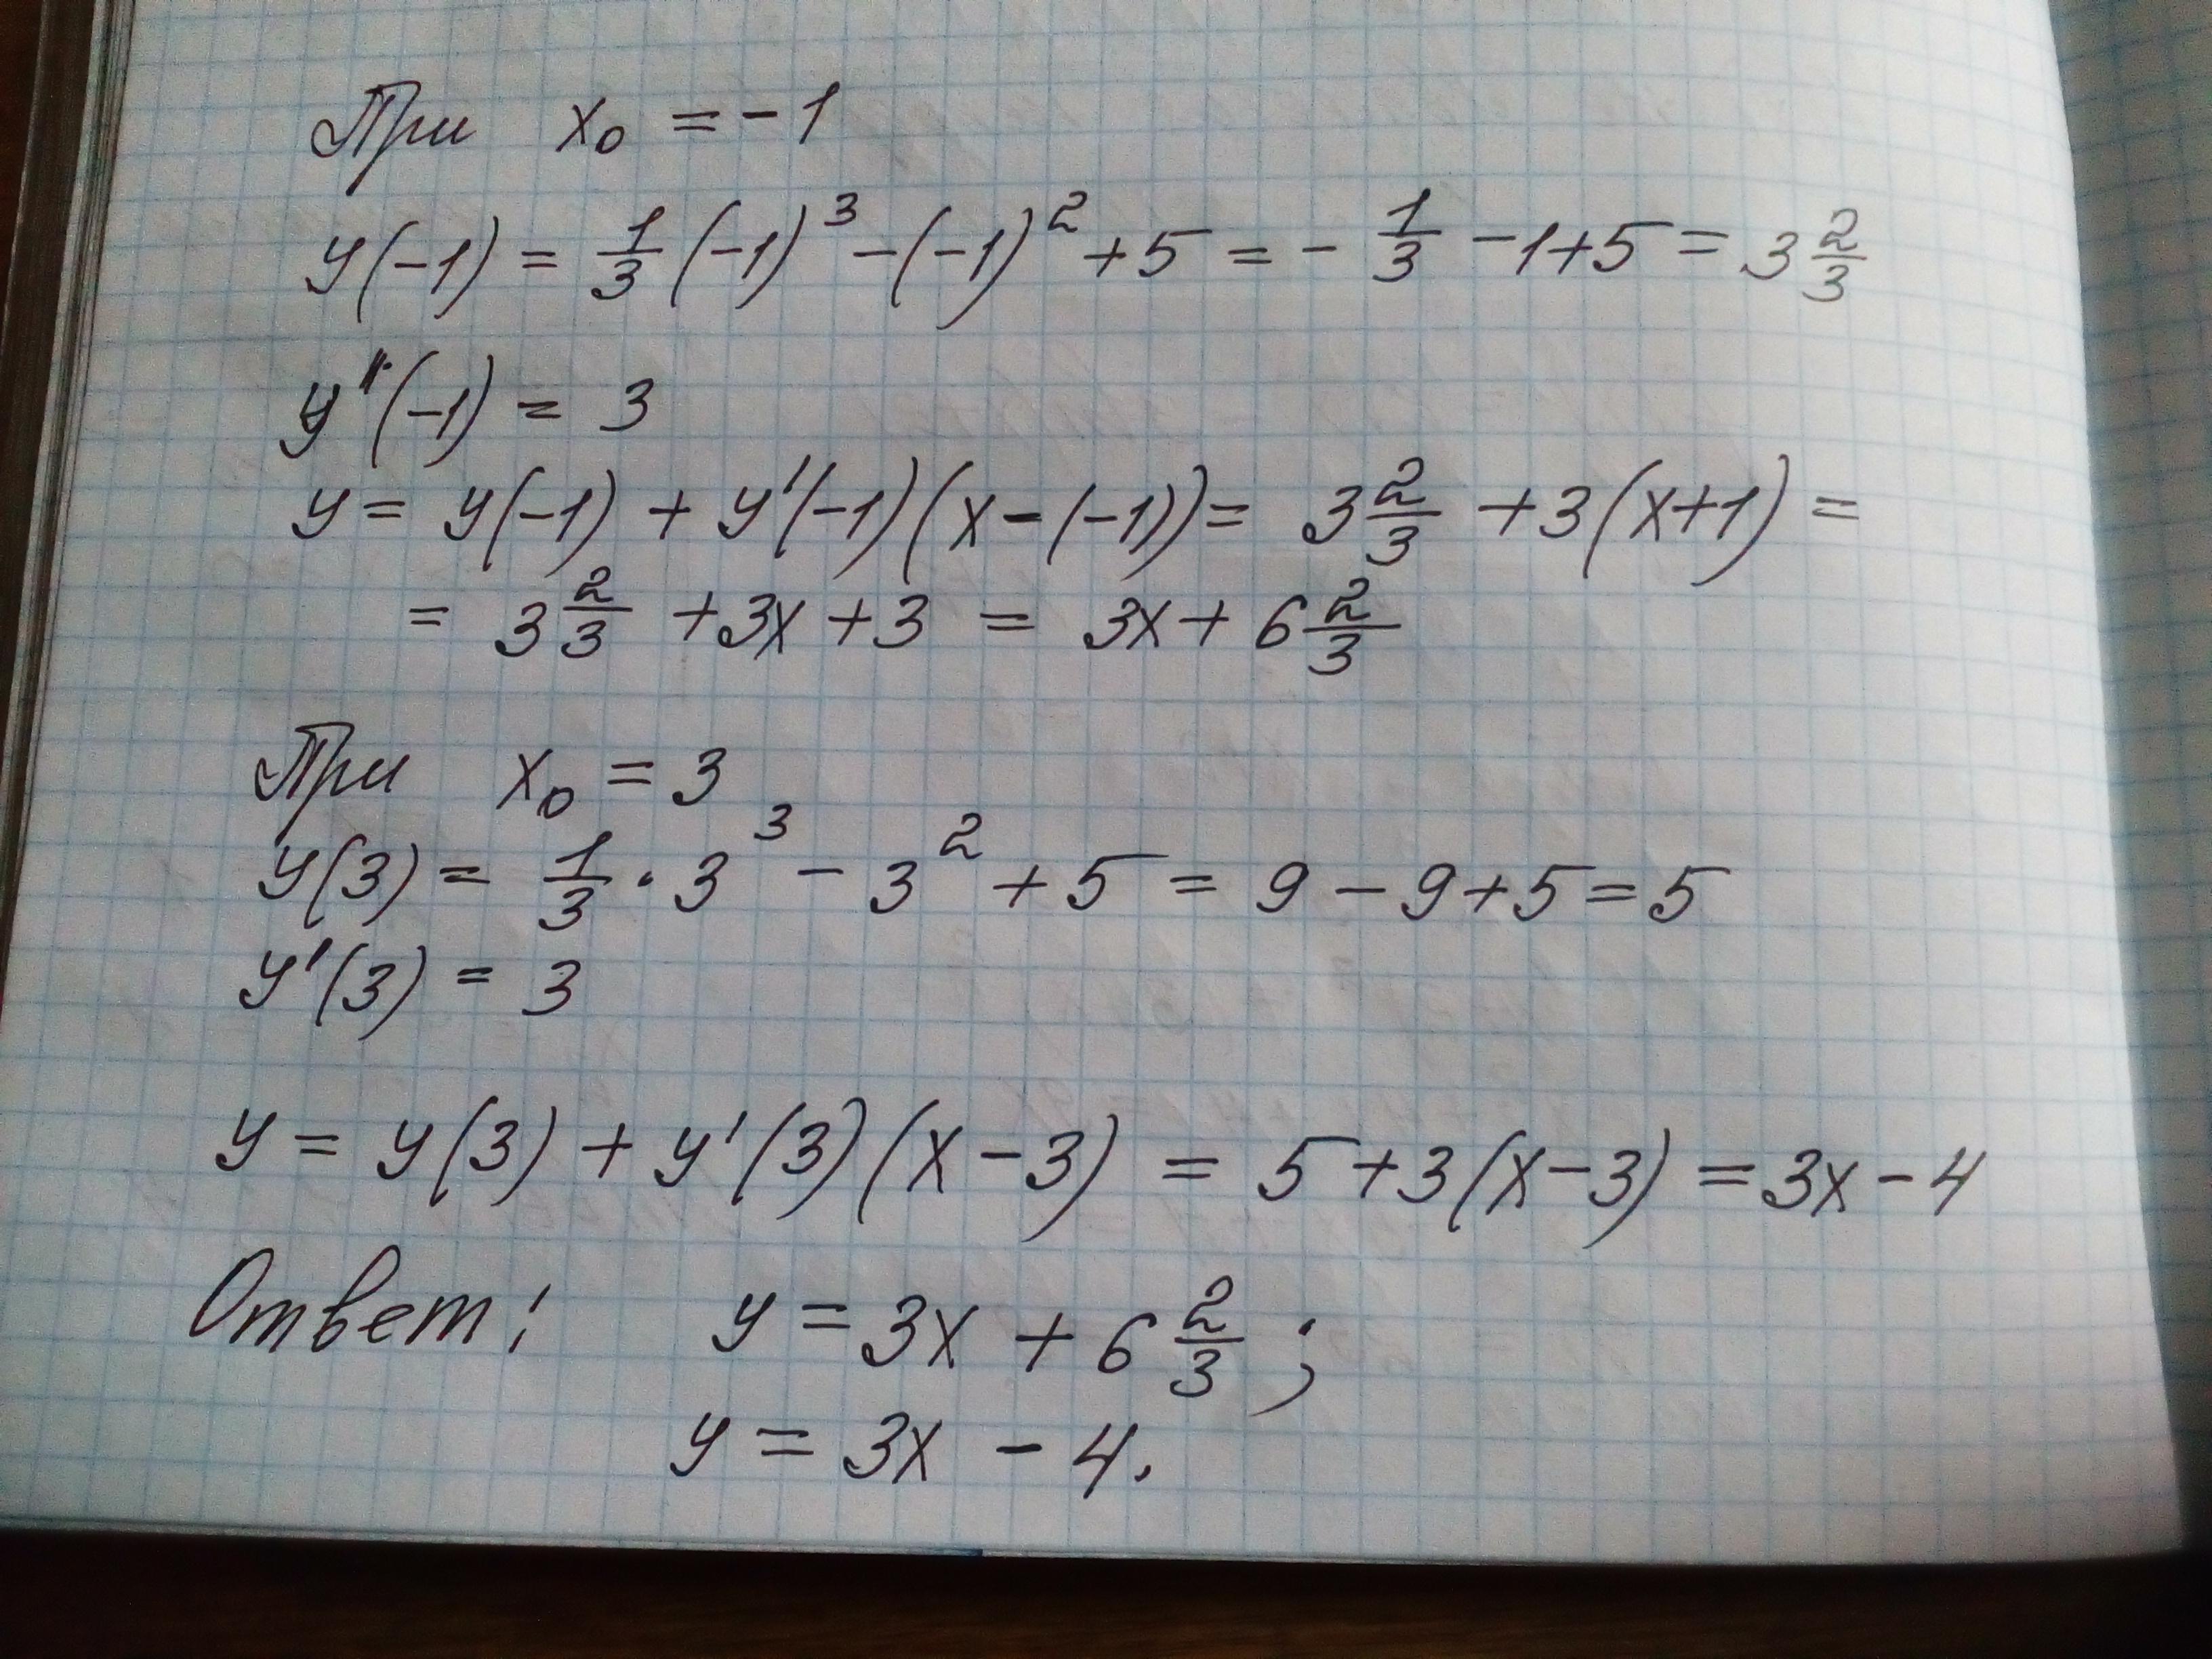 При x₀ = -1
y(-1) = 1/3 (-1)³ - (-1)² + 5 = - 1/3 - 1 + 5 = 3 2/3
y'(-1) = 3
y = y(-1) + y'(-1)(x - (-1)) = 3 2/3 + 3(x+1) =
= 3 2/3 + 3x + 3 = 3x + 6 2/3
При x₀ = 3
y(3) = 1/3 · 3³ - 3² + 5 = 9 - 9 + 5 = 5
y'(3) = 3
y = y(3) + y'(3)(x - 3) = 5 + 3(x - 3) = 3x - 4
Ответ: y = 3x + 6 2/3 ;
y = 3x - 4.